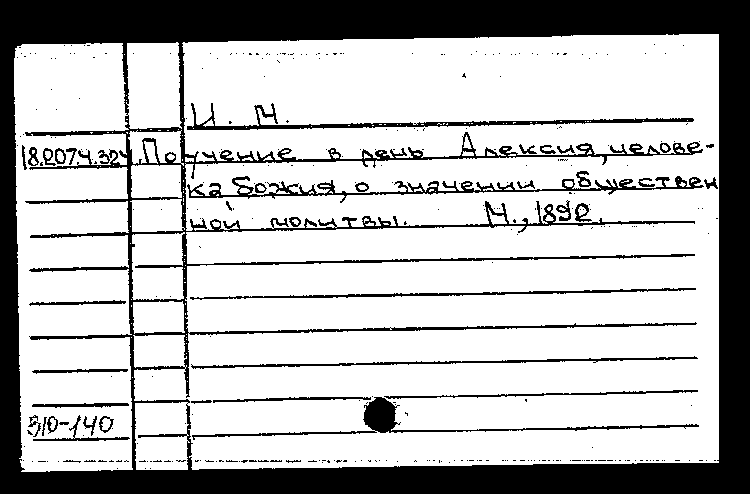 И. М.
18.207ч.324. Поучение в день Алексия, челове-
ка Божия, о значении обществен
ной молитвы. М., 1892.
310-140